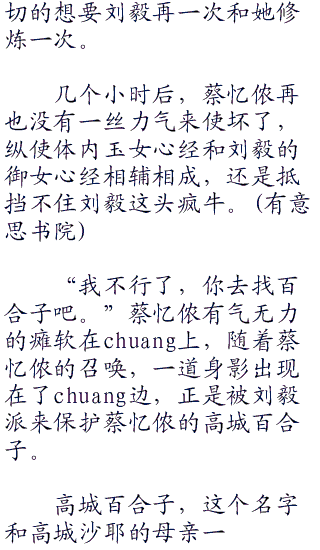 切的想要刘毅再一次和她修
炼一次。
几个小时后，蔡忆侬再
也没有一丝力气来使坏了，
纵使体内玉女心经和刘毅的
御女心经相辅相成，还是抵
挡不住刘毅这头疯牛。(有意
思书院)
“我不行了，你去找百
合子吧。”蔡忆侬有气无力
的瘫软在chuang上，随着蔡
忆侬的召唤，一道身影出现
在了chuang边，正是被刘毅
派来保护蔡忆侬的高城百合
子。
高城百合子，这个名字
和高城沙耶的母亲一